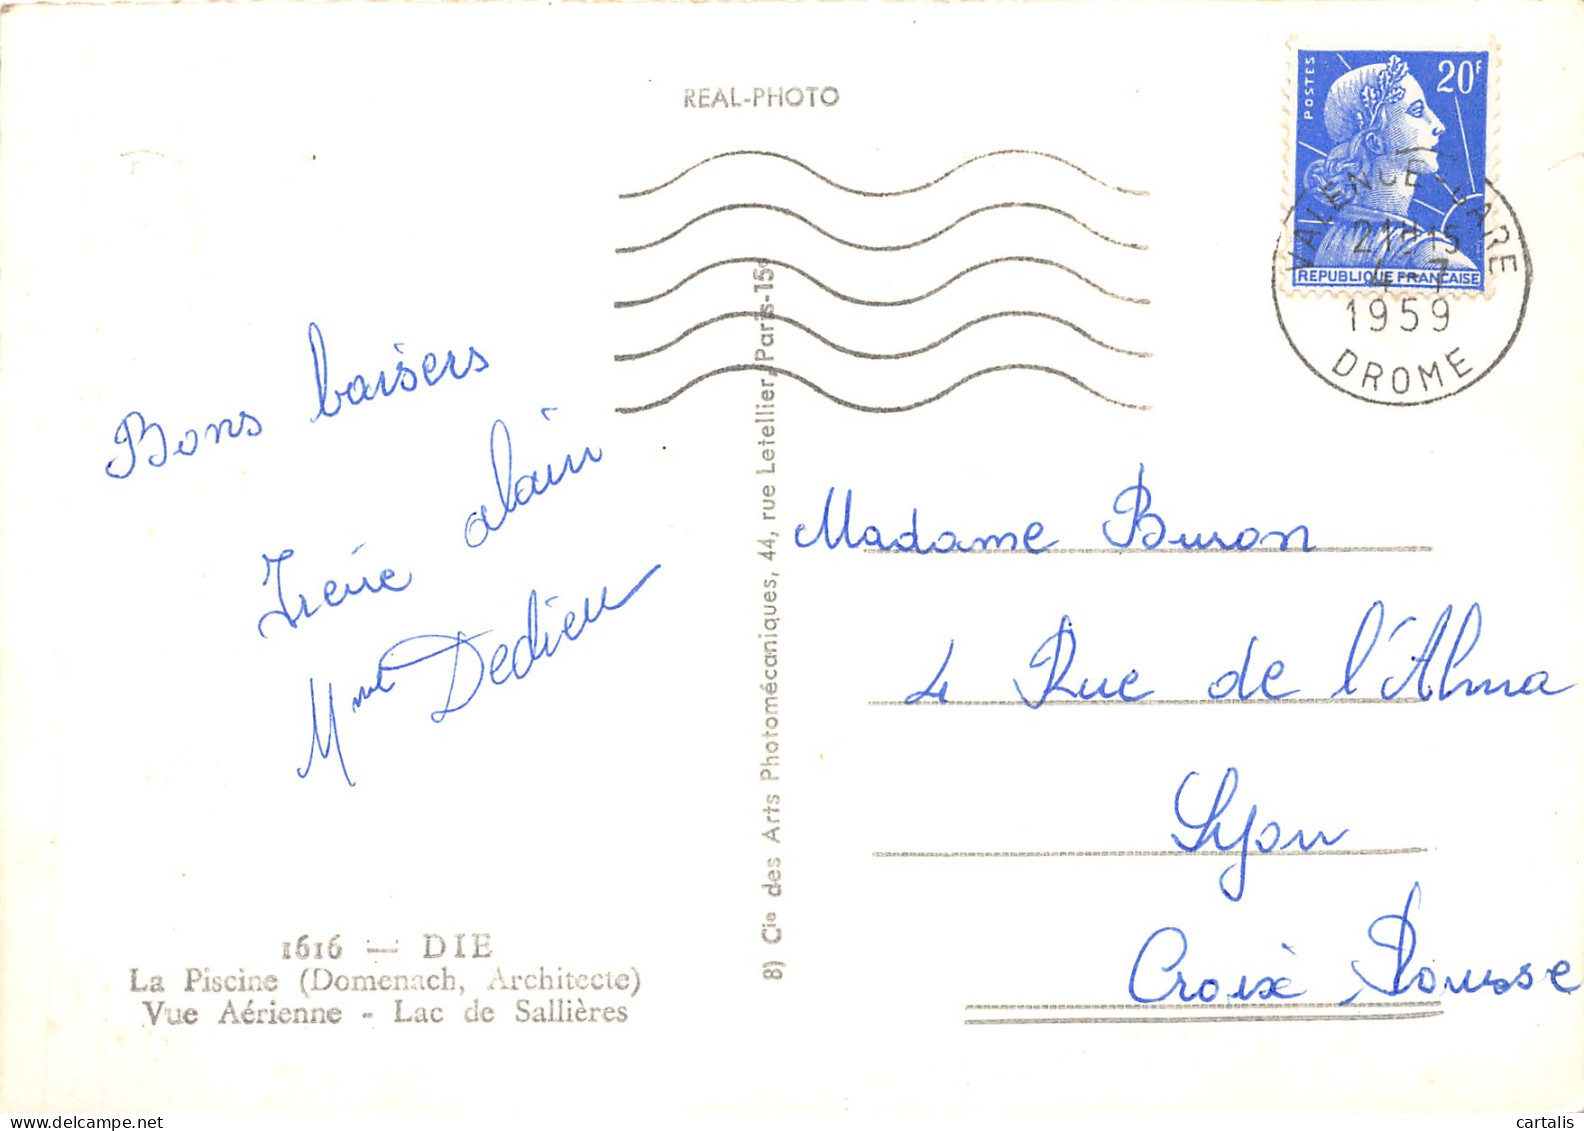 REAL-PHOTO
POSTES
20F
REPUBLIQUE FRANÇAISE
VALENCE-GARE
21H15
4-7
1959
DROME
Bons baisers
Irène alain
Mme Dedieu
1616 — DIE
La Piscine (Domenach, Architecte)
Vue Aérienne - Lac de Sallières
8) Cie des Arts Photomécaniques, 44, rue Letellier, Paris-15e
Madame Buron
4 Rue de l'Alma
Lyon
Croix Rousse
cartalis